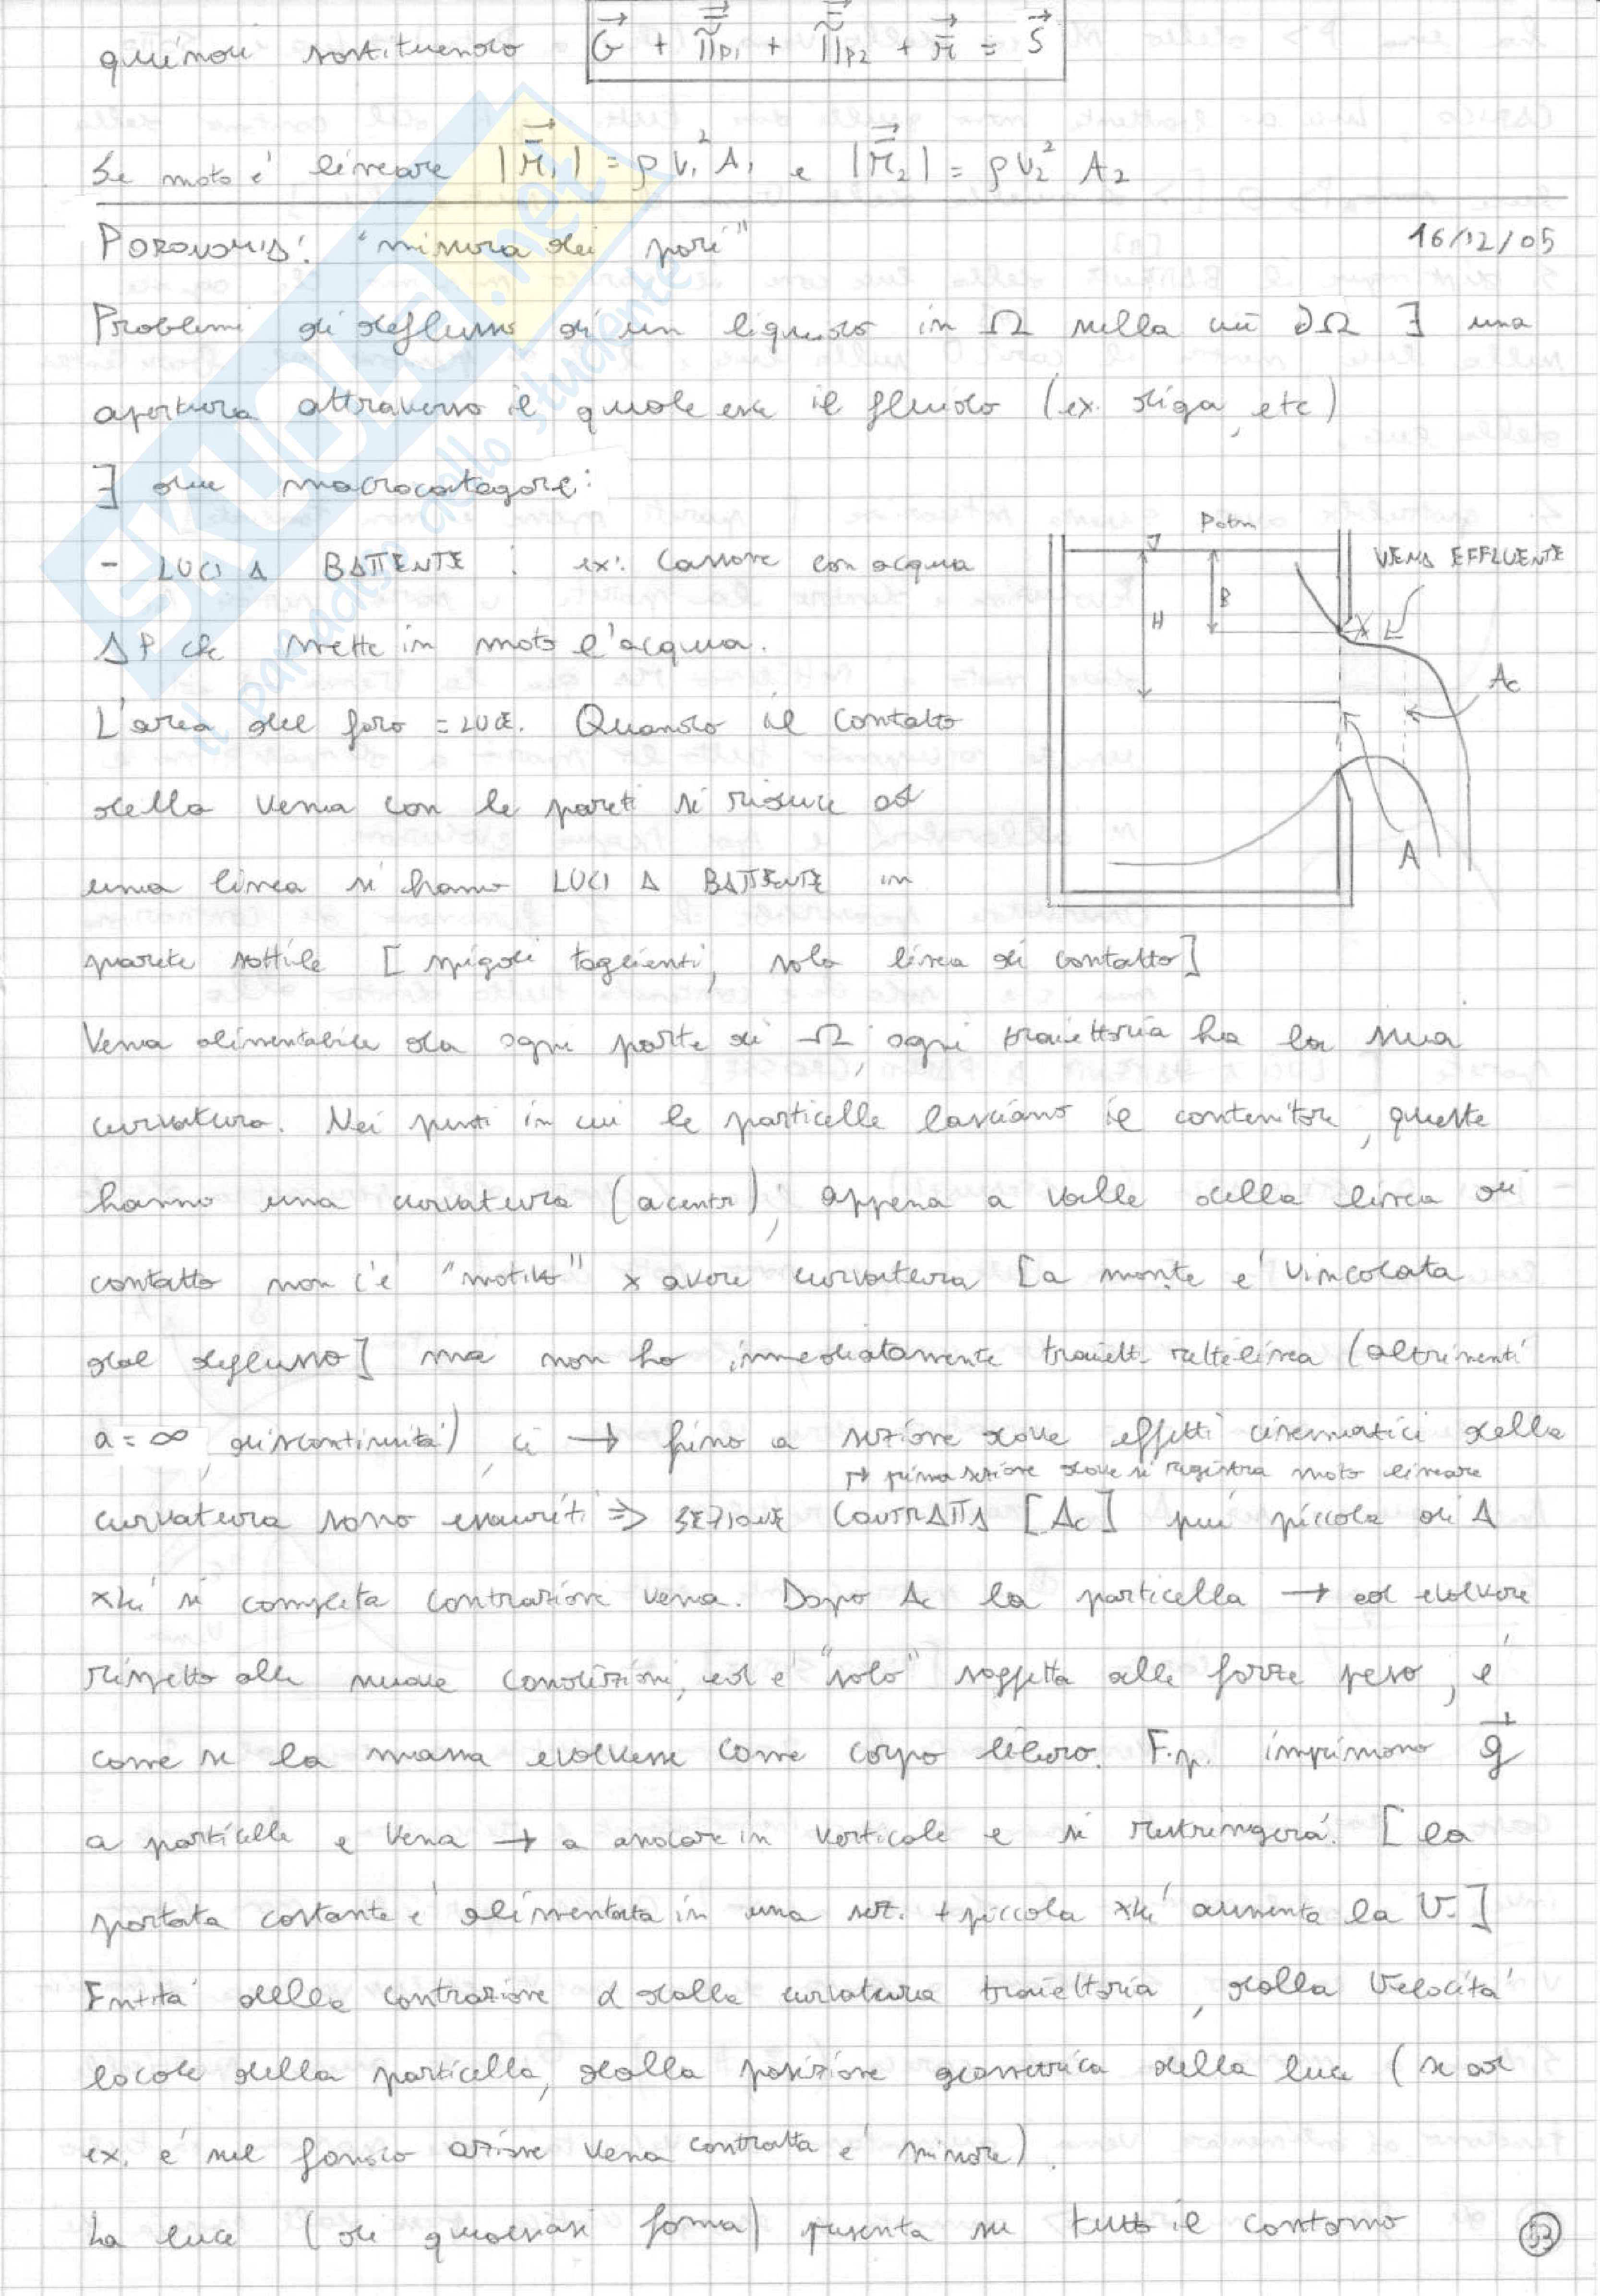 quindi sostituendo G + Πp1 + Πp2 + M = S
Se moto è lineare |M1| = ρ V1² A1 e |M2| = ρ V2² A2
FORONOMIA: "misura dei fori" 16/12/05
Problemi di deflusso di un liquido in Ω nella cui ∂Ω ∃ una
apertura attraverso il quale esce il fluido (ex. diga, etc)
∃ due macrocategorie:
- LUCI A BATTENTE : ex: Cassone con acqua
ΔP che mette in moto l'acqua.
L'area del foro = LUCE. Quando il contatto
della vena con le pareti si riduce ad
una linea si hanno LUCI A BATTENTE in
parete sottile [spigoli taglienti, solo linea di contatto]
Patm
VENA EFFLUENTE
B
H
Ac
A
Vena alimentabile da ogni parte di Ω, ogni traiettoria ha la sua
curvatura. Nei punti in cui le particelle lasciano il contenitore, queste
hanno una curvatura (acentr), appena a valle della linea di
contatto non c'è "motivo" x avere curvatura [a monte è vincolata
dal deflusso] ma non ho immediatamente traiett. rettilinea (altrimenti
a = ∞, discontinuità), ci → fino a sezione dove effetti cinematici della
↱ prima sezione dove si registra moto lineare
curvatura sono esauriti ⇒ SEZIONE CONTRATTA [Ac] più piccola di A
xkè si completa contrazione vena. Dopo Ac la particella → ad evolvere
rispetto alle nuove condizioni, ed è "solo" soggetta alle forze peso, è
come se la massa evolvesse come corpo libero. F.p. imprimono g
a particelle e vena → a andare in verticale e si restringerà. [la
portata costante è alimentata in una sez. + piccola xkè aumenta la V.]
Entità della contrazione α dalla curvatura traiettoria, dalla velocità
locale della particella, dalla posizione geometrica della luce (se ad
ex. è nel fondo azione vena contratta è minore).
La luce (di qualsiasi forma) presenta su tutto il contorno
53
SKUOLA.net
il paradiso dello studente